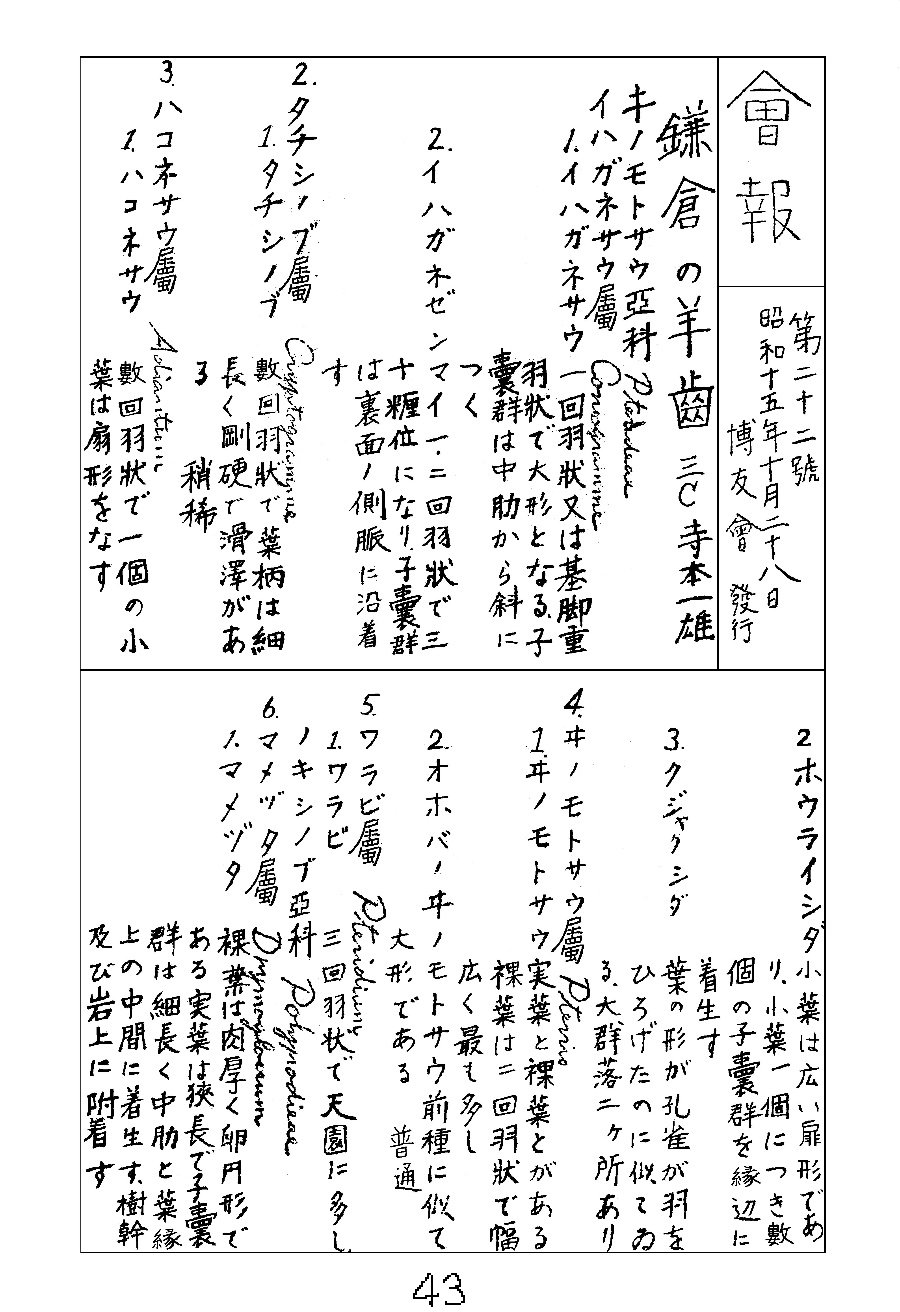 會報
第二十二號
昭和十五年十月二十八日
博友會 發行
鎌倉の羊齒 三C 寺本一雄
キノモトサウ亞科 Pterideae
イハガネサウ屬 Coniogramme
1. イハガネサウ 一回羽狀又は基脚重
羽狀で大形となる、子
囊群は中肋から斜に
つく
2. イハガネゼンマイ 一、二回羽狀で三
十糎位になり子囊群
は裏面ノ側脈に沿着
す
2. タチシノブ屬 Cryptogramme
1. タチシノブ 數回羽狀で葉柄は細
長く剛硬で滑澤があ
る 稍稀
3. ハコネサウ屬 Adiantum
1. ハコネサウ 數回羽狀で一個の小
葉は扇形をなす
2 ホウライシダ 小葉は広い扉形であ
り、小葉一個につき數
個の子囊群を縁辺に
着生す
3. クジャクシダ 葉の形が孔雀が羽を
ひろげたのに似てゐ
る、大群落二ヶ所あり
4. ヰノモトサウ屬 Pteris
1. ヰノモトサウ 実葉と裸葉とがある
裸葉は二回羽狀で幅
広く最も多し
2. オホバノヰノモトサウ 前種に似て
大形である 普通
5. ワラビ屬 Pteridium
1. ワラビ 三回羽狀で天園に多し
ノキシノブ亞科 Polypodieae
6. マメヅタ屬 Drymoglossum
1. マメヅタ 裸葉は肉厚く卵円形で
ある実葉は狹長で子囊
群は細長く中肋と葉縁
上の中間に着生す、樹幹
及び岩上に附着す
43